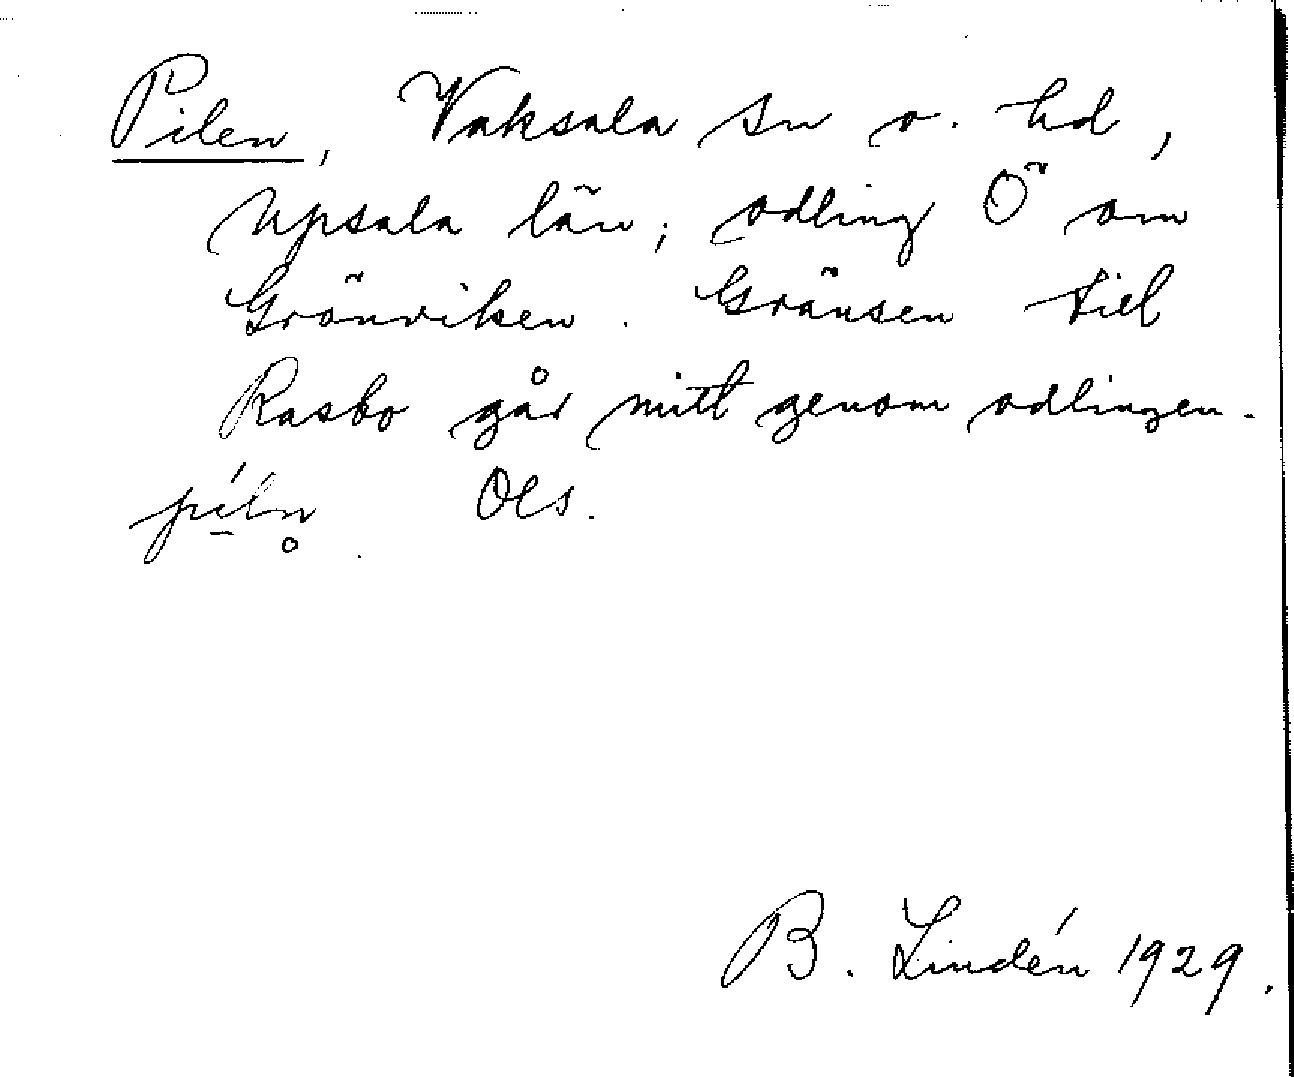 Pilen, Vaksala sn o. hd,
Upsala län; odling Ö om
Grönviken. Gränsen till
Rasbo går mitt genom odlingen.
pí̱ln̥ Ols.
B. Lindén 1929.